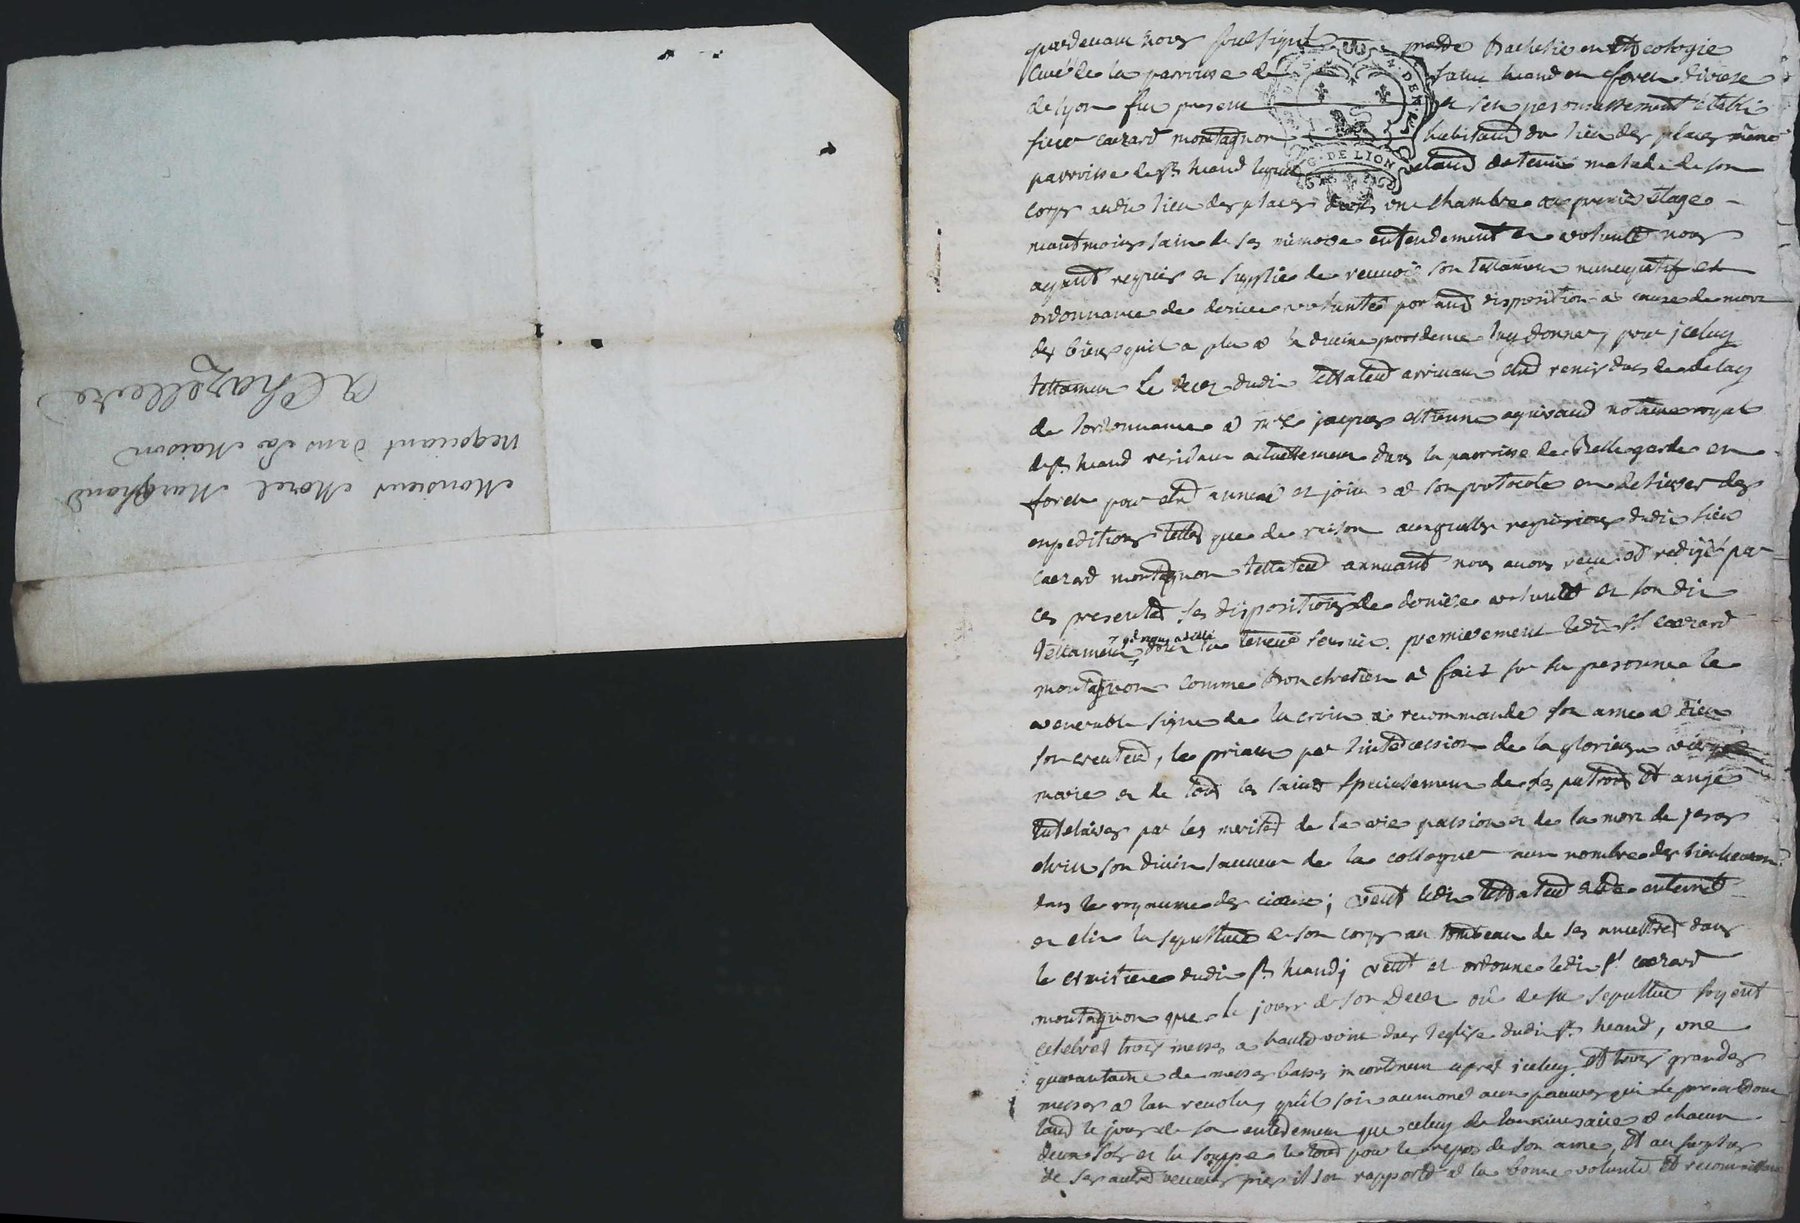 Monsieur Morel Marchand
negociant dans sa Maison
a Chazelle
pardevant nous soussigné prêtre Bachelier en theologie
Curé de la parroisse de saint heand en forest diocese
de lyon fut present et feu personnellement établi
sieur cæzard montagnon habitant du lieu des places même
parroisse de st heand lequel étant détenu malade de son
corps audit lieu des places dans une chambre au premier étage
neantmoins sain de ses memoire entendement et volonté nous
ayant requis et supplié de recevoir son testament nuncupatif et
ordonnance de derniere volonté portant disposition a cause de mort
des biens qu'il a plu a la divine providence luy donner, pour iceluy
testament le decez dudit testateur arrivant etre remis dans le delay
de l'ordonnance a me jacques estienne agniraud notaire royal
de st heand residant actuellement dans la parroisse de Bellegarde en
forest pour etre annexé et joint a son protocole et delivrer des
expeditions telles que de raison auxquelles requisitions dudit sieur
cæzard montagnon testateur annuant nous avons reçu et redigé par
ces presentes ses dispositions de derniere volonté et son dit
testament dont la teneur s'ensuit. premierement ledit sr cæzard
montagnon comme bon chretien a fait sur sa personne le
venerable signe de la croix a recommandé son ame a dieu
son createur, le priant par l'intercession de la glorieuse vierge
marie et de tous les saints specialement de ses patrons et ange
tutelaires par les merites de la vie passion et de la mort de jesus
christ son divin sauveur de la colloquer au nombre des bienheureux
dans le royaume des cieux; veut ledit testateur etre enterré
et elit la sepulture de son corps au tombeau de ses ancestres dans
le cimitiere dudit st heand; veut et ordonne ledit sr cæzard
montagnon que le jour de son decez ou de sa sepulture soyent
celebrés trois messes a haute voix dans l'eglise dudit st heand, une
quarantaine de messes basses incontinent après iceluy et trois grandes
messes a l'an revolu, qu'il soit aumoné aux pauvres qui se presenteront
tant le jour de son enterrement que celuy de l'anniversaire a chacun
deux sols et la souppe le tout pour le repos de son ame, et au surplus
de ses autres œuvres pies il s'en rapporte a la bonne volonté et reconnoissance
G. DE LION